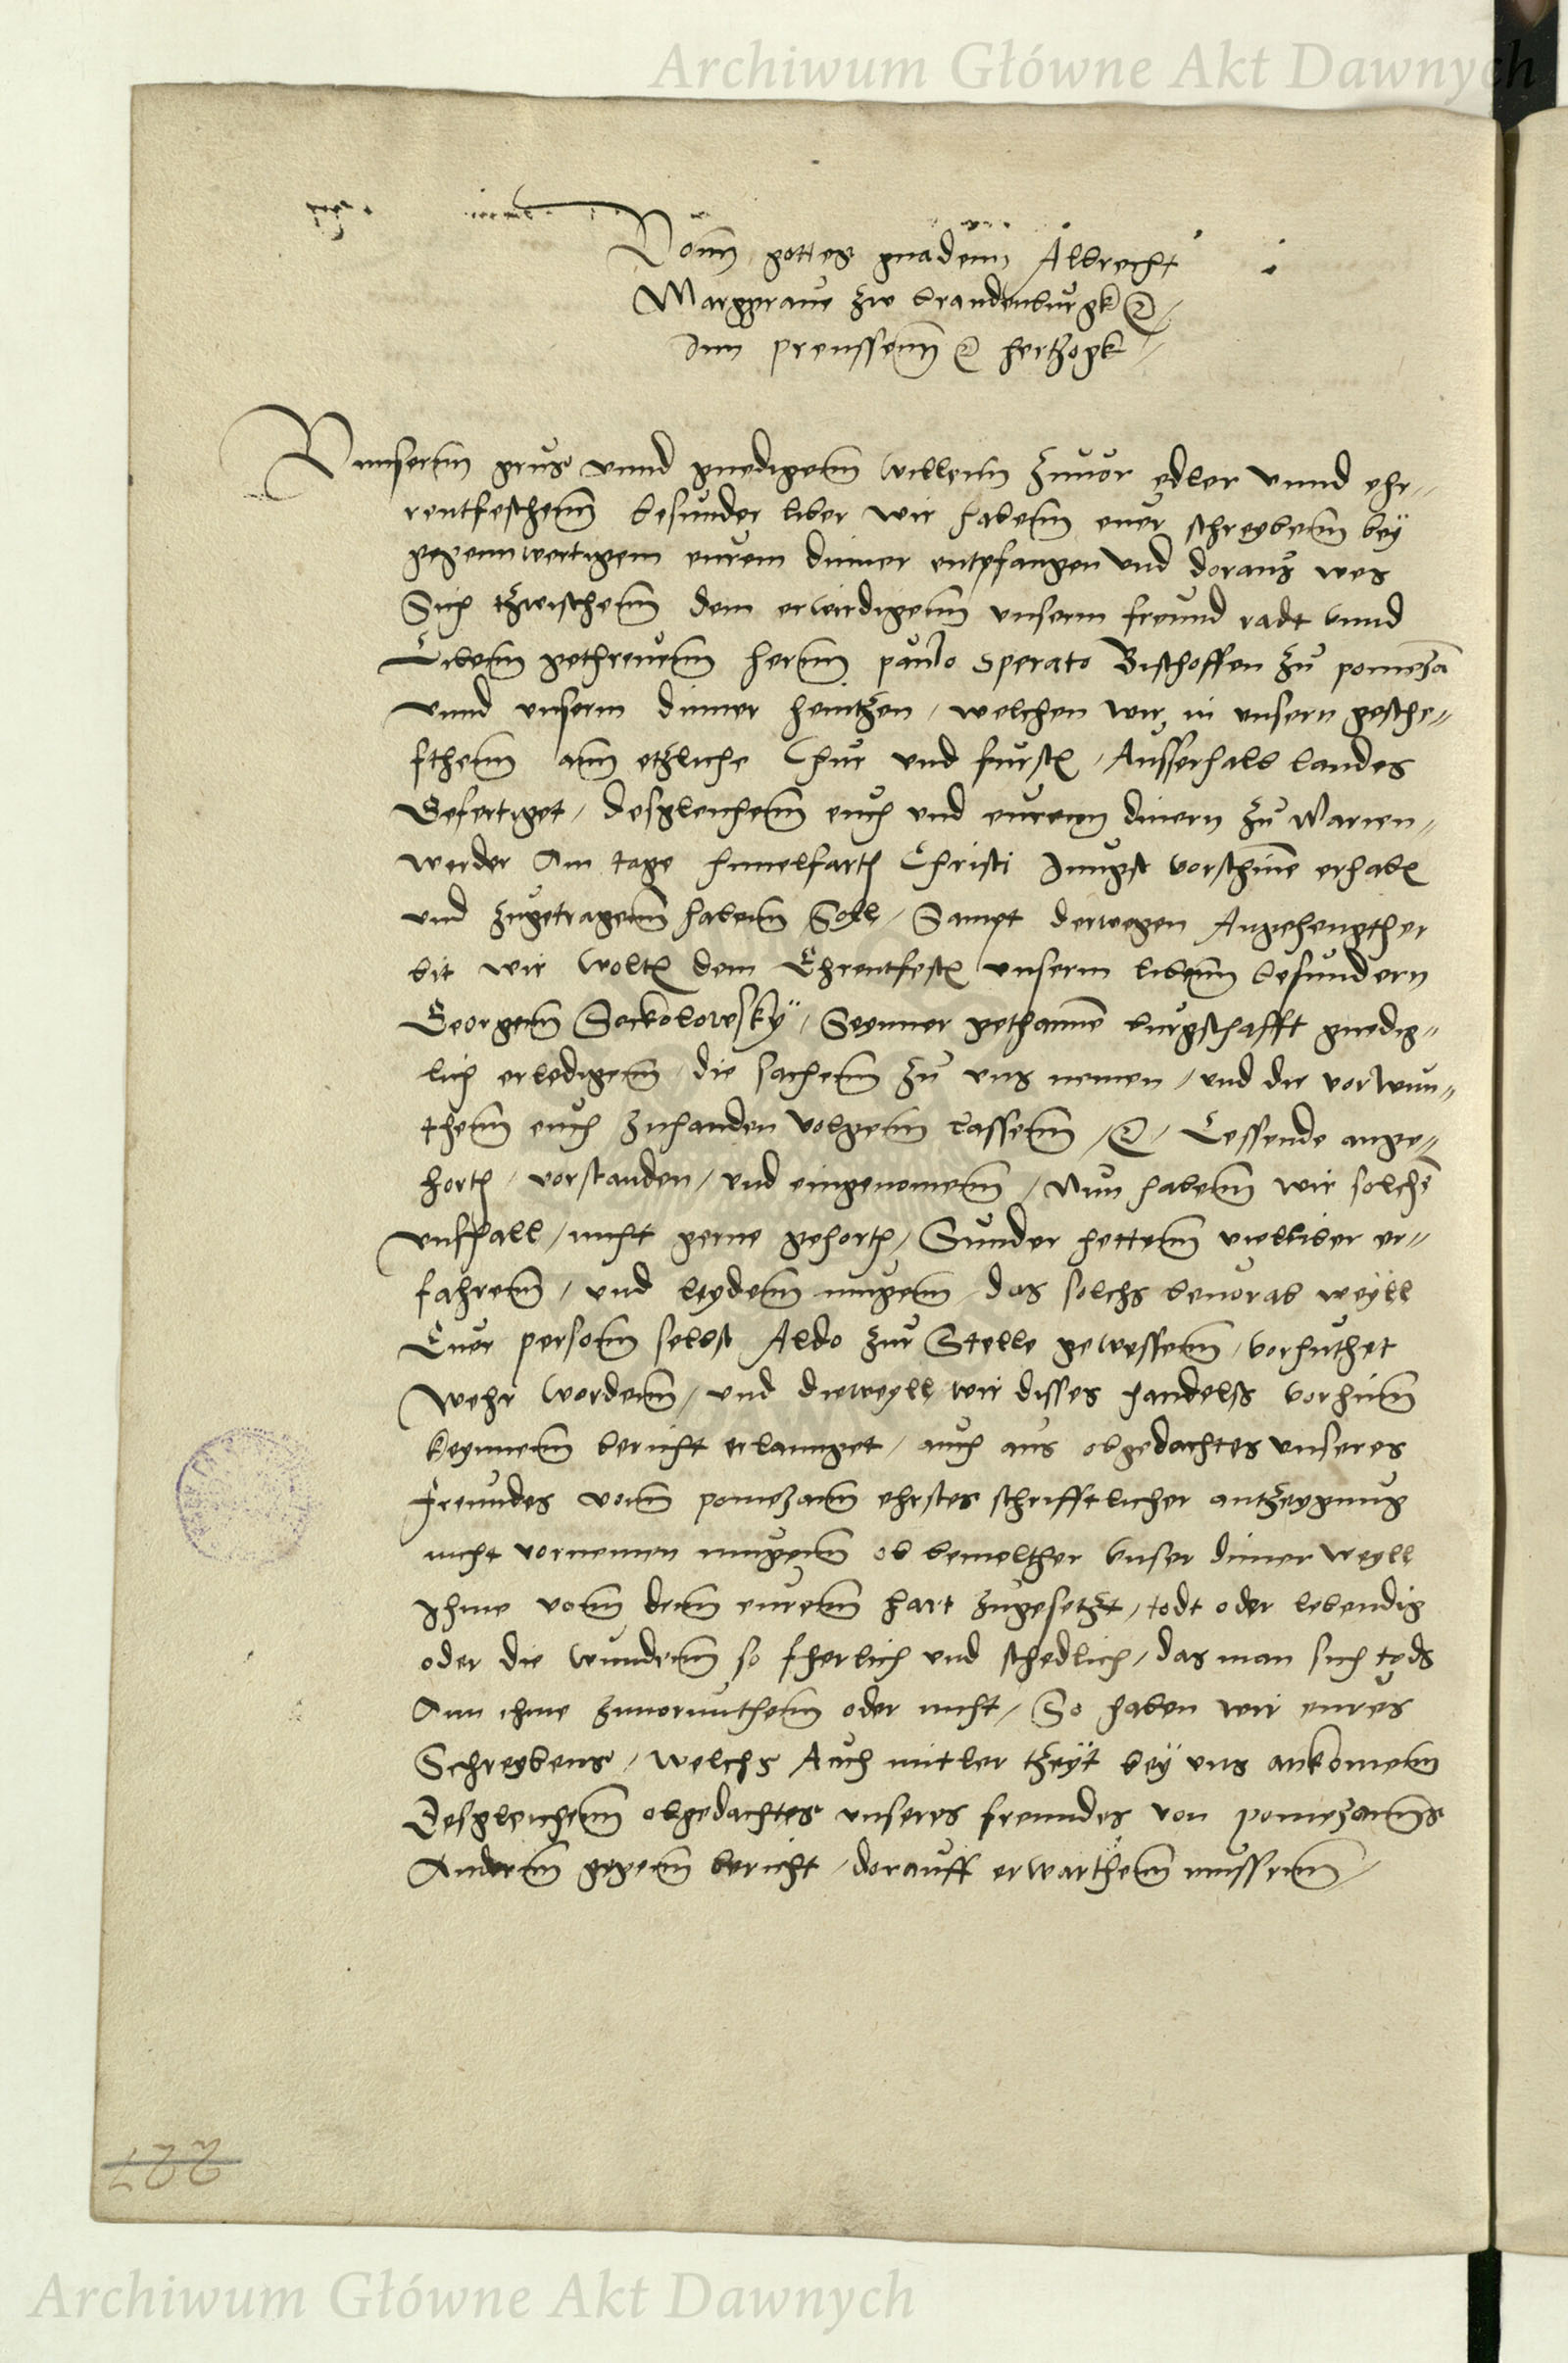 Archiwum Główne Akt Dawnych
Vonn gottes gnadenn Albrecht
Marggraue zw brandenburgk etc
Inn preussenn etc hertzogk
Vnnsernn grus vnnd gnedigenn willenn zuuor edler vnnd ehr-
rentfesthenn besunder liber wir habenn euer schreybenn bey
gegennwertigem eurem dinner entpfangen vnd doraus wes
Sich tzwischenn dem erwirdigenn vnserm freund radt vnnd
Libenn gethreuenn hernn paulo Sperato Bischoffen zu pomeza
vnnd vnserm dinner heintzen / welchen wir in vnsern gesche-
fthenn ann etzliche Chur vnd furstn / Ausserhalb landes
Gefertiget / desgleichenn euch vnd eurenn dinern zu Marien-
werder Am tage himelfarth Christi Jungst vorschine erhabn
vnd zugetragenn habenn Soll / Sampt derwegen Angehengther
bit wir woltn dem Ehrentfestn vnserm libenn besundern
Georgenn Sockolowsky / Seynner gethanne burgschafft gnedig-
lich erledigenn / die sachenn zu vns nemen / vnd die vorwun-
thenn euch zuhanden volgenn lassenn / etc / Lessende ange-
horth / vorstanden / vnd eingenomenn / Nun habenn wir solche
vnfhall / nicht gerne gehorth / Sunder hettenn vielliber er-
fahrenn / vnd leydenn mugenn das solchs beuorab weyll
Euer personn selbst Aldo zur Stelle gewessenn / vorhuthet
Wehr wordenn / vnd dieweyll wir disses handelss vorhinn
keynnenn bericht erlannget / auch aus obgedachtes vnseres
freundes vonn pomezann ehrstes schrifftlicher antzeygnug
nicht vornemen mugenn ob bemelther vnser dinner weyll
Ihme vonn denn eurenn hart zugesetzt / todt oder lebendig
oder die wundenn so fherlich vnd schedlich / das man sich tods
Ann ihme zuuormuthenn oder nicht / So haben wir eures
Schreybens / welchs Auch mitler tzeyt bey vns ankomenn
Desgleichenn obgedachtes vnseres freundes von pomezanns
Andernn gegenn bericht / dorauff erwarthenn mussenn /
Archiwum Główne Akt Dawnych